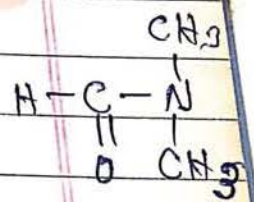 CH3
H-C-N
O CH3